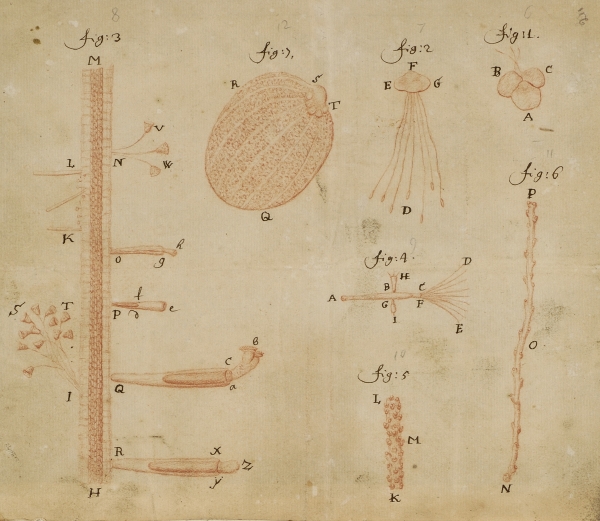 8
fig:3
M
L
N
V
W
K
O
g
h
S
T
P
f
d
e
I
Q
C
B
a
R
X
Z
y
H
12
fig:7.
R
S
T
Q
7
fig:2
F
E
G
D
6
fig:1.
B
C
A
9
fig:4.
D
H
B
C
A
G
F
I
E
10
fig:5
L
M
K
11
fig:6
P
O
N